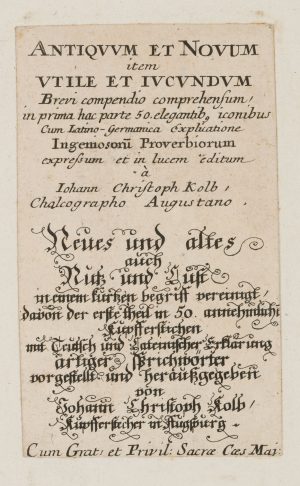 ANTIQVVM ET NOVUM
item
VTILE ET IVCUNDUM
Brevi compendio comprehensum,
in prima hac parte 50. elegantib9 iconibus
Cum Latino-Germanica Explicatione
Ingemosorũ Proverbiorum
expressum et in lucem editum
à
Iohann Christoph Kolb,
Chalcographo Augustano.
Neues und altes
auch
Nutz und Lust
in einem kurtzen begriff vereinigt,
davon der erste theil in 50. annehmlichē
Kupfferstichen
mit Teutsch und Lateinischer Erklärung
artiger Sprichwörter
vorgestellt und heraußgegeben
von
Johann Christoph Kolb,
Kupfferstecher in Augsburg.
Cum Grat: et Privil: Sacræ Cæs Mai: